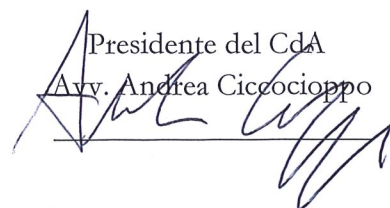 Presidente del CdA
Avv. Andrea Ciccocioppo